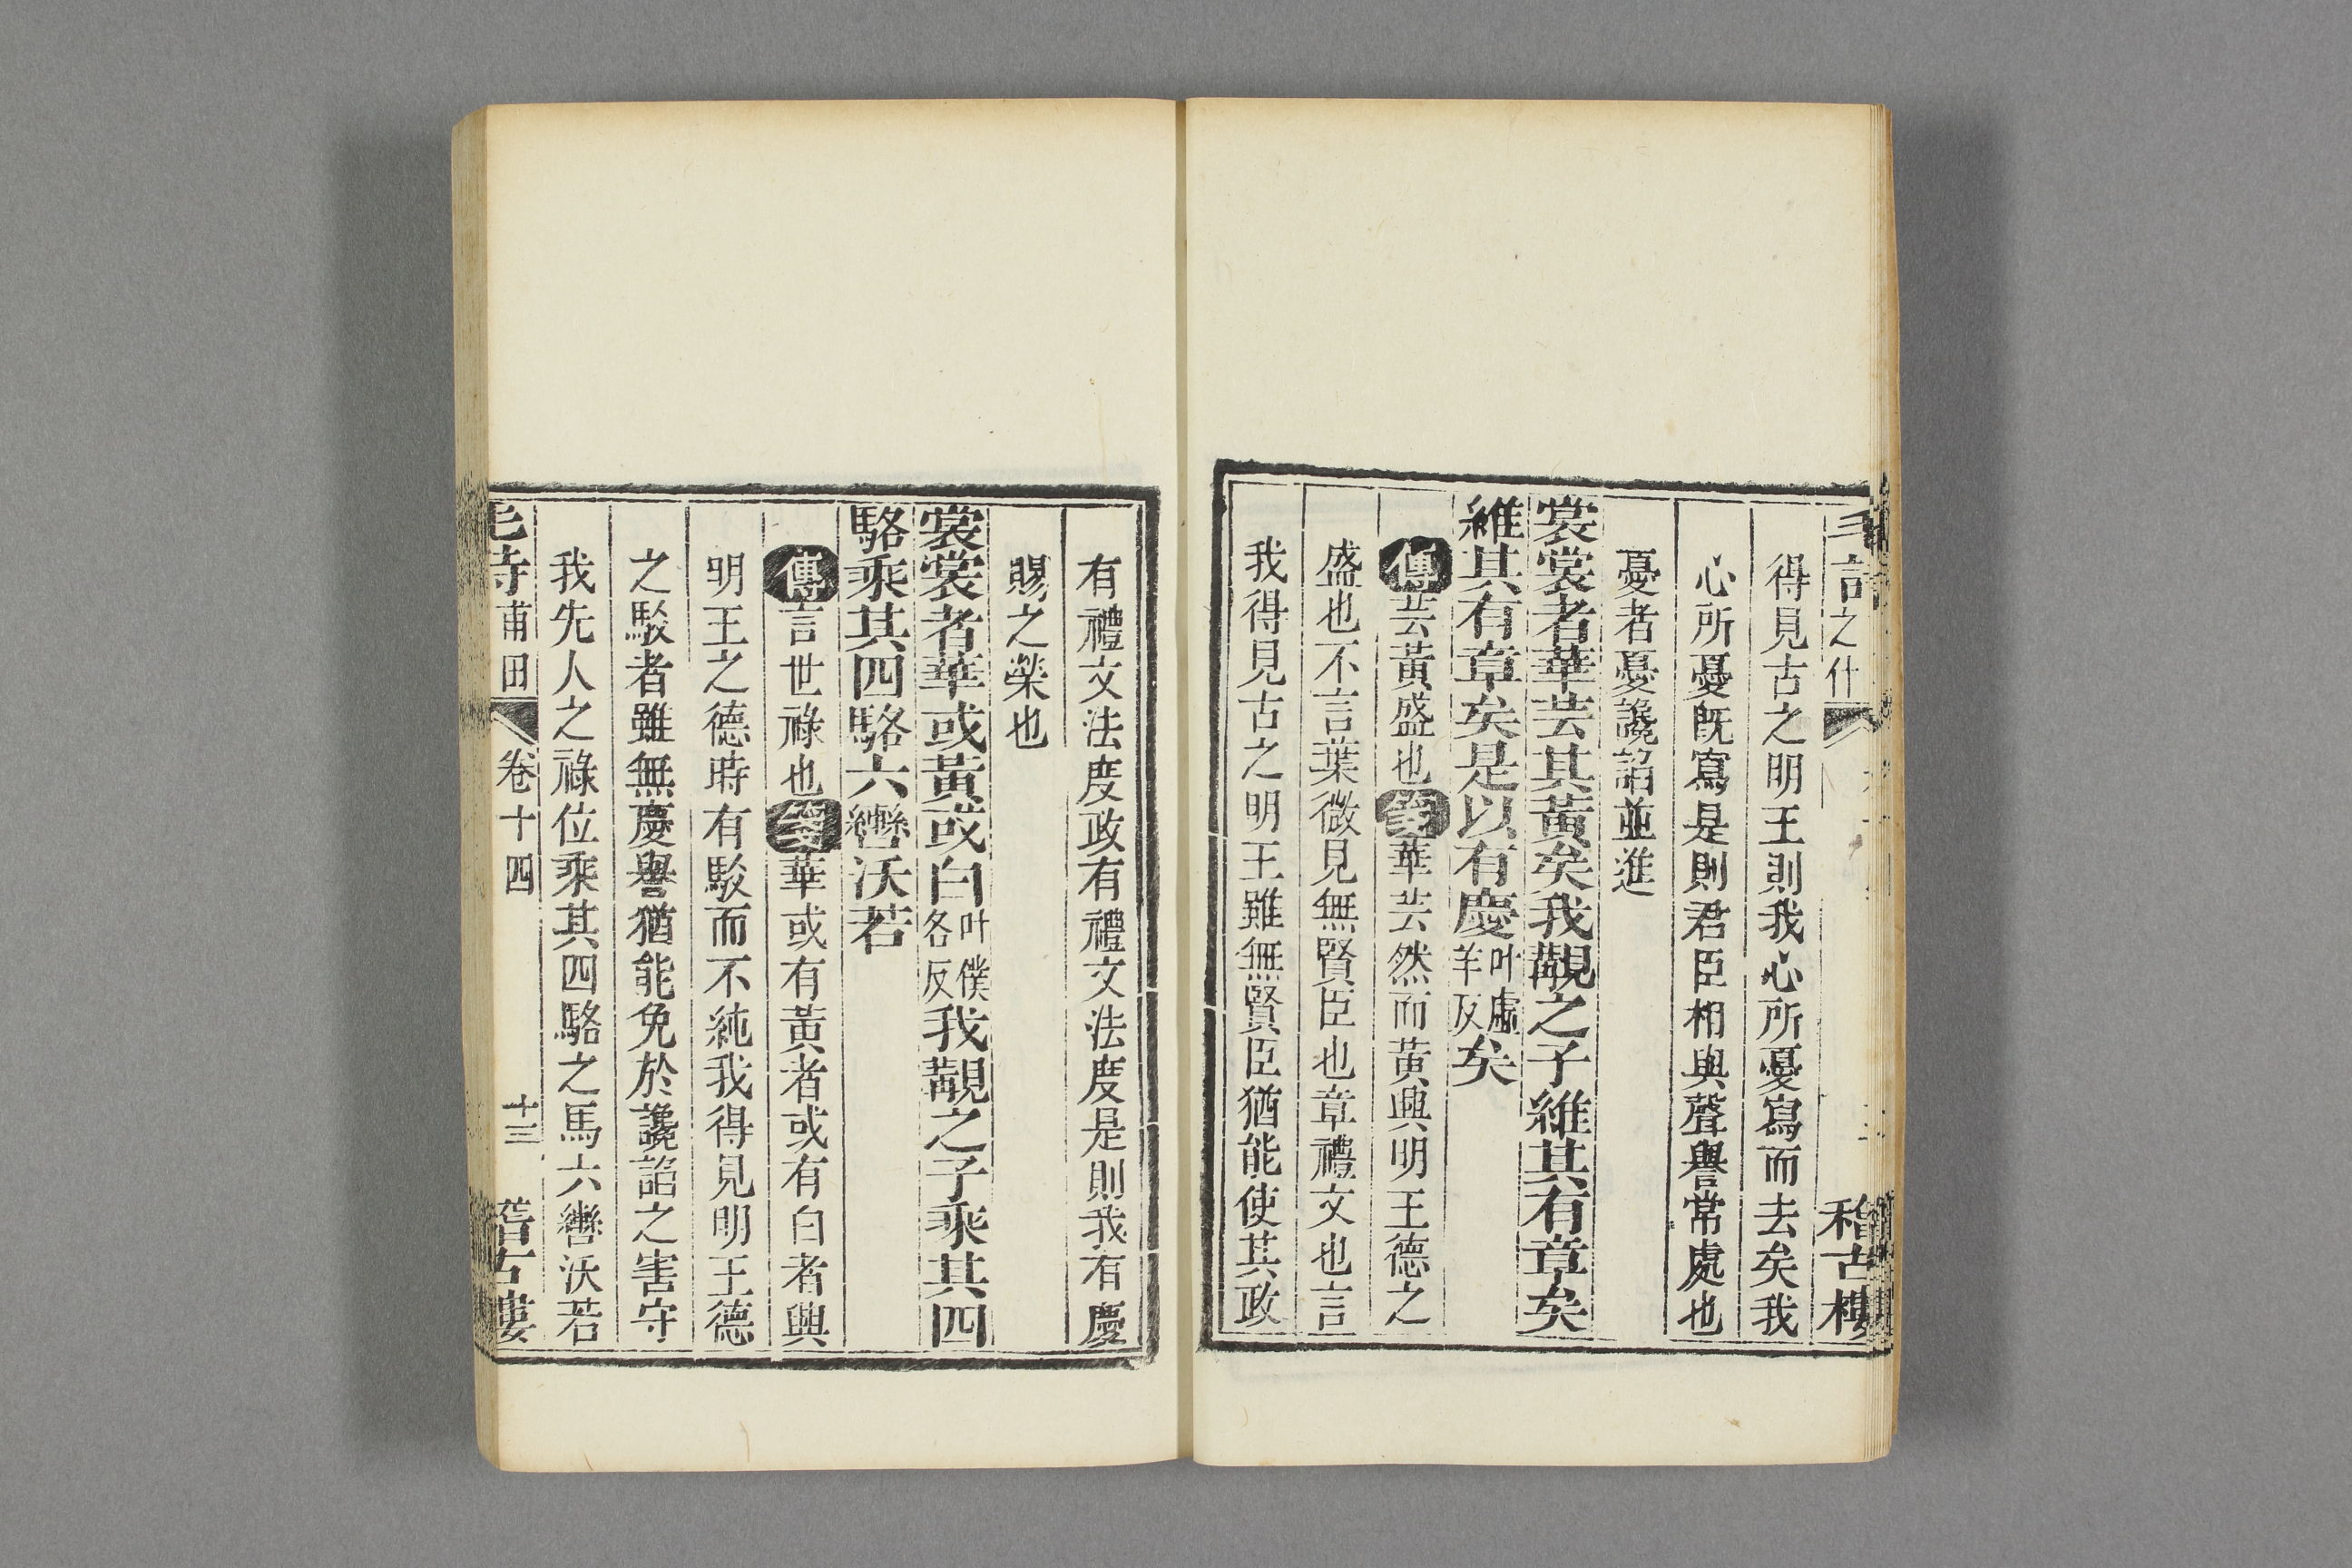 之什
稽古樓
得見古之明王則我心所憂寫而去矣我
心所憂旣寫是則君臣相與聲譽常處也
憂者憂讒諂並進
裳裳者華芸其黃矣我覯之子維其有章矣
維其有章矣是以有慶叶虛羊反矣
傳芸黃盛也箋華芸然而黃興明王德之
盛也不言葉微見無賢臣也章禮文也言
我得見古之明王雖無賢臣猶能使其政
有禮文法度政有禮文法度是則我有慶
賜之榮也
裳裳者華或黃或白叶僕各反我覯之子乘其四
駱乘其四駱六轡沃若
傳言世祿也箋華或有黃者或有白者興
明王之德時有駁而不純我得見明王德
之駁者雖無慶譽猶能免於讒諂之害守
我先人之祿位乘其四駱之馬六轡沃若
毛詩甫田 卷十四 十三 稽古樓